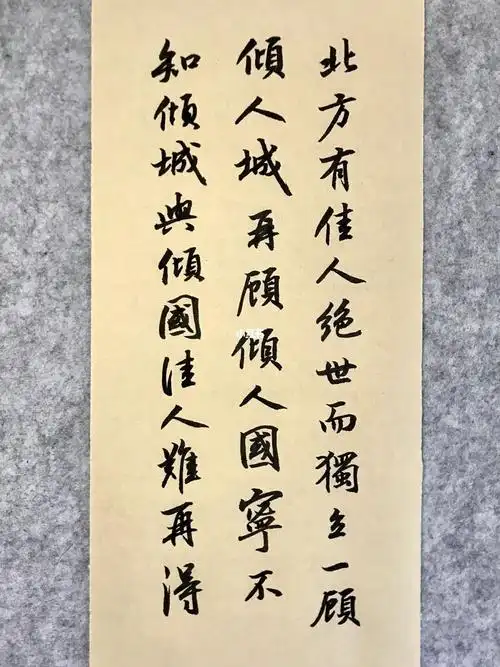 北方有佳人绝世而獨立一顾
傾人城再顾傾人國寧不
知傾城與傾國佳人難再得